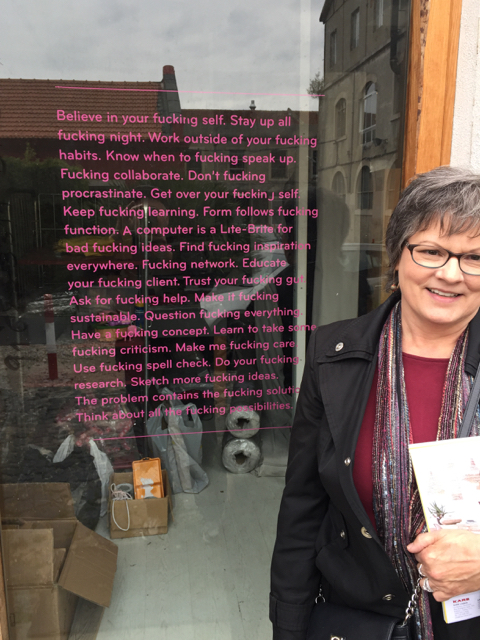 Believe in your fucking self. Stay up all
fucking night. Work outside of your fucking
habits. Know when to fucking speak up.
Fucking collaborate. Don't fucking
procrastinate. Get over your fucking self.
Keep fucking learning. Form follows fucking
function. A computer is a Lite-Brite for
bad fucking ideas. Find fucking inspiration
everywhere. Fucking network. Educate
your fucking client. Trust your fucking gut.
Ask for fucking help. Make it fucking
sustainable. Question fucking everything.
Have a fucking concept. Learn to take some
fucking criticism. Make me fucking care.
Use fucking spell check. Do your fucking
research. Sketch more fucking ideas.
The problem contains the fucking solution.
Think about all the fucking possibilities.